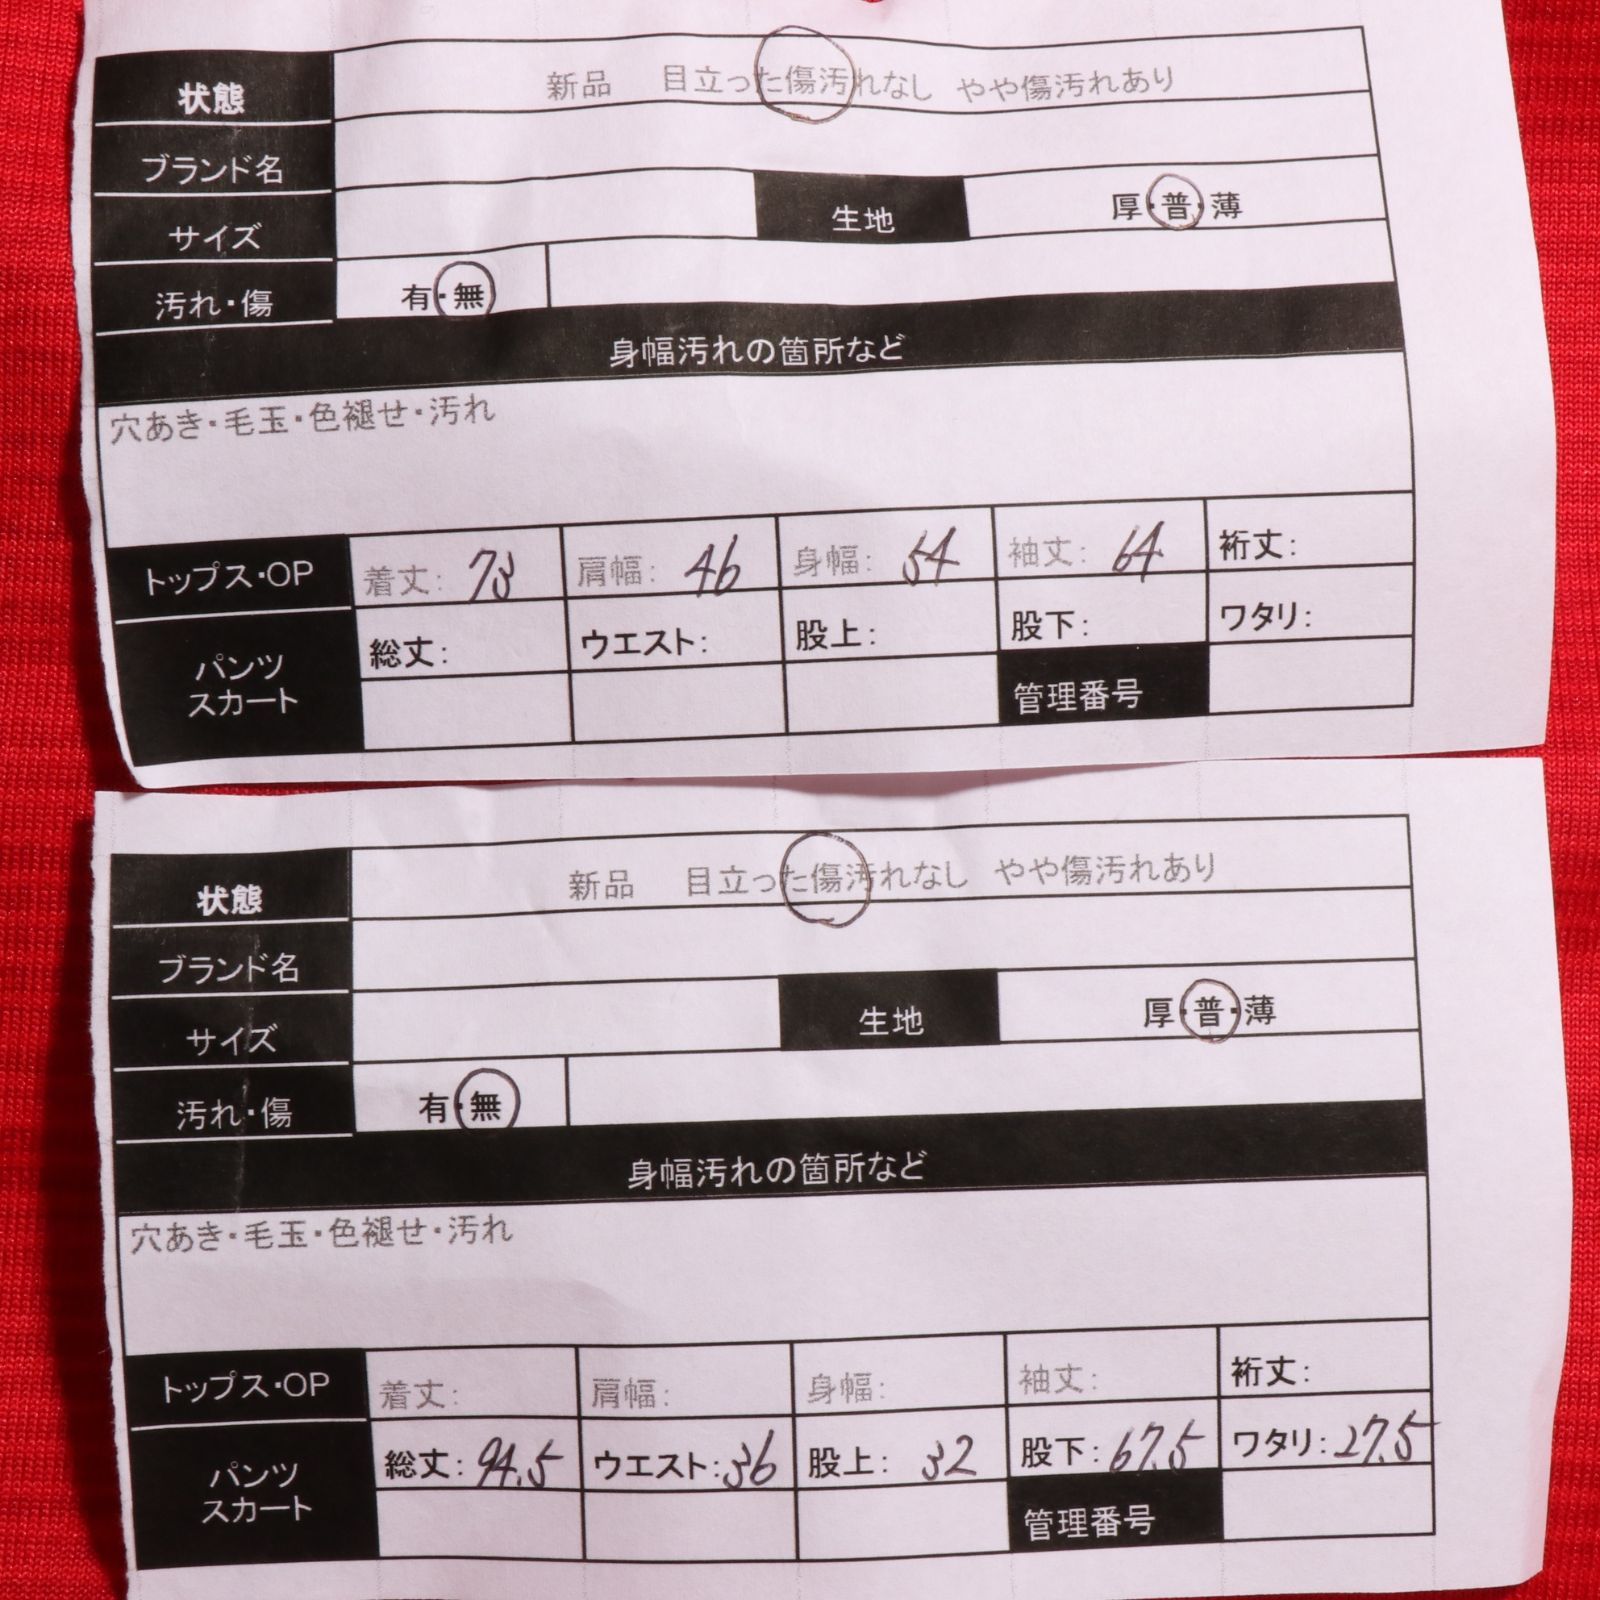 状態 新品 目立った傷汚れなし やや傷汚れあり
ブランド名
サイズ 生地 厚・普・薄
汚れ・傷 有・無
身幅汚れの箇所など
穴あき・毛玉・色褪せ・汚れ
トップス・OP 着丈: 73 肩幅: 46 身幅: 54 袖丈: 64 裄丈:
パンツ スカート 総丈: ウエスト: 股上: 股下: ワタリ:
管理番号
状態 新品 目立った傷汚れなし やや傷汚れあり
ブランド名
サイズ 生地 厚・普・薄
汚れ・傷 有・無
身幅汚れの箇所など
穴あき・毛玉・色褪せ・汚れ
トップス・OP 着丈: 肩幅: 身幅: 袖丈: 裄丈:
パンツ スカート 総丈: 94.5 ウエスト: 36 股上: 32 股下: 67.5 ワタリ: 27.5
管理番号